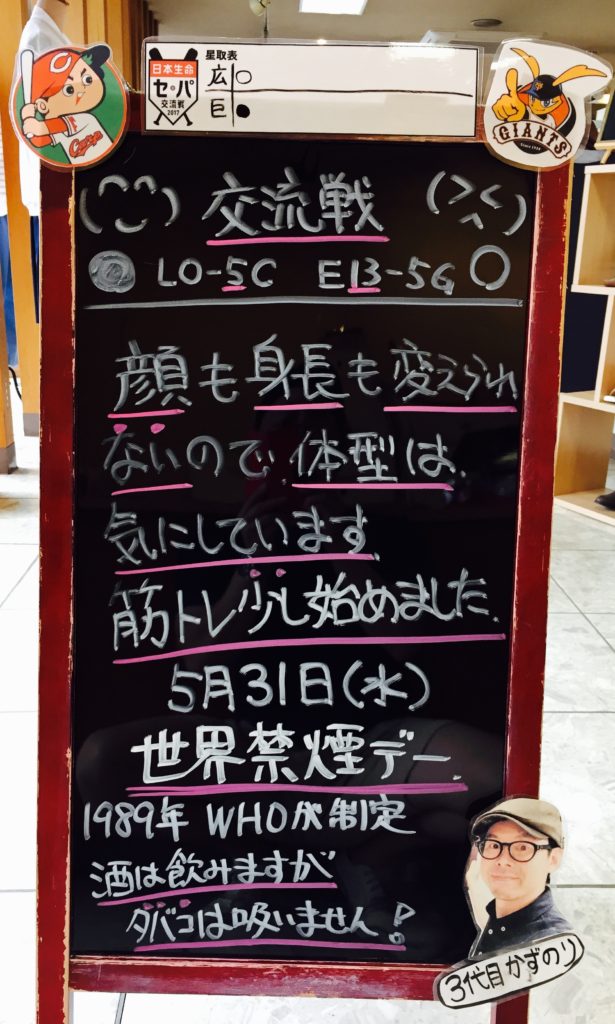 星取表
日本生命
セ・パ
交流戦
2017
広 ○
巨 ●
Carp
GIANTS
Since 1934
(^^) 交流戦 (><)
L0-5C E13-5G ○
顔も身長も変えられ
ないので体型は
気にしています
筋トレ少し始めました.
5月31日(水)
世界禁煙デー.
1989年 WHOが制定
酒は飲みますが
タバコは吸いません!
3代目かずのり